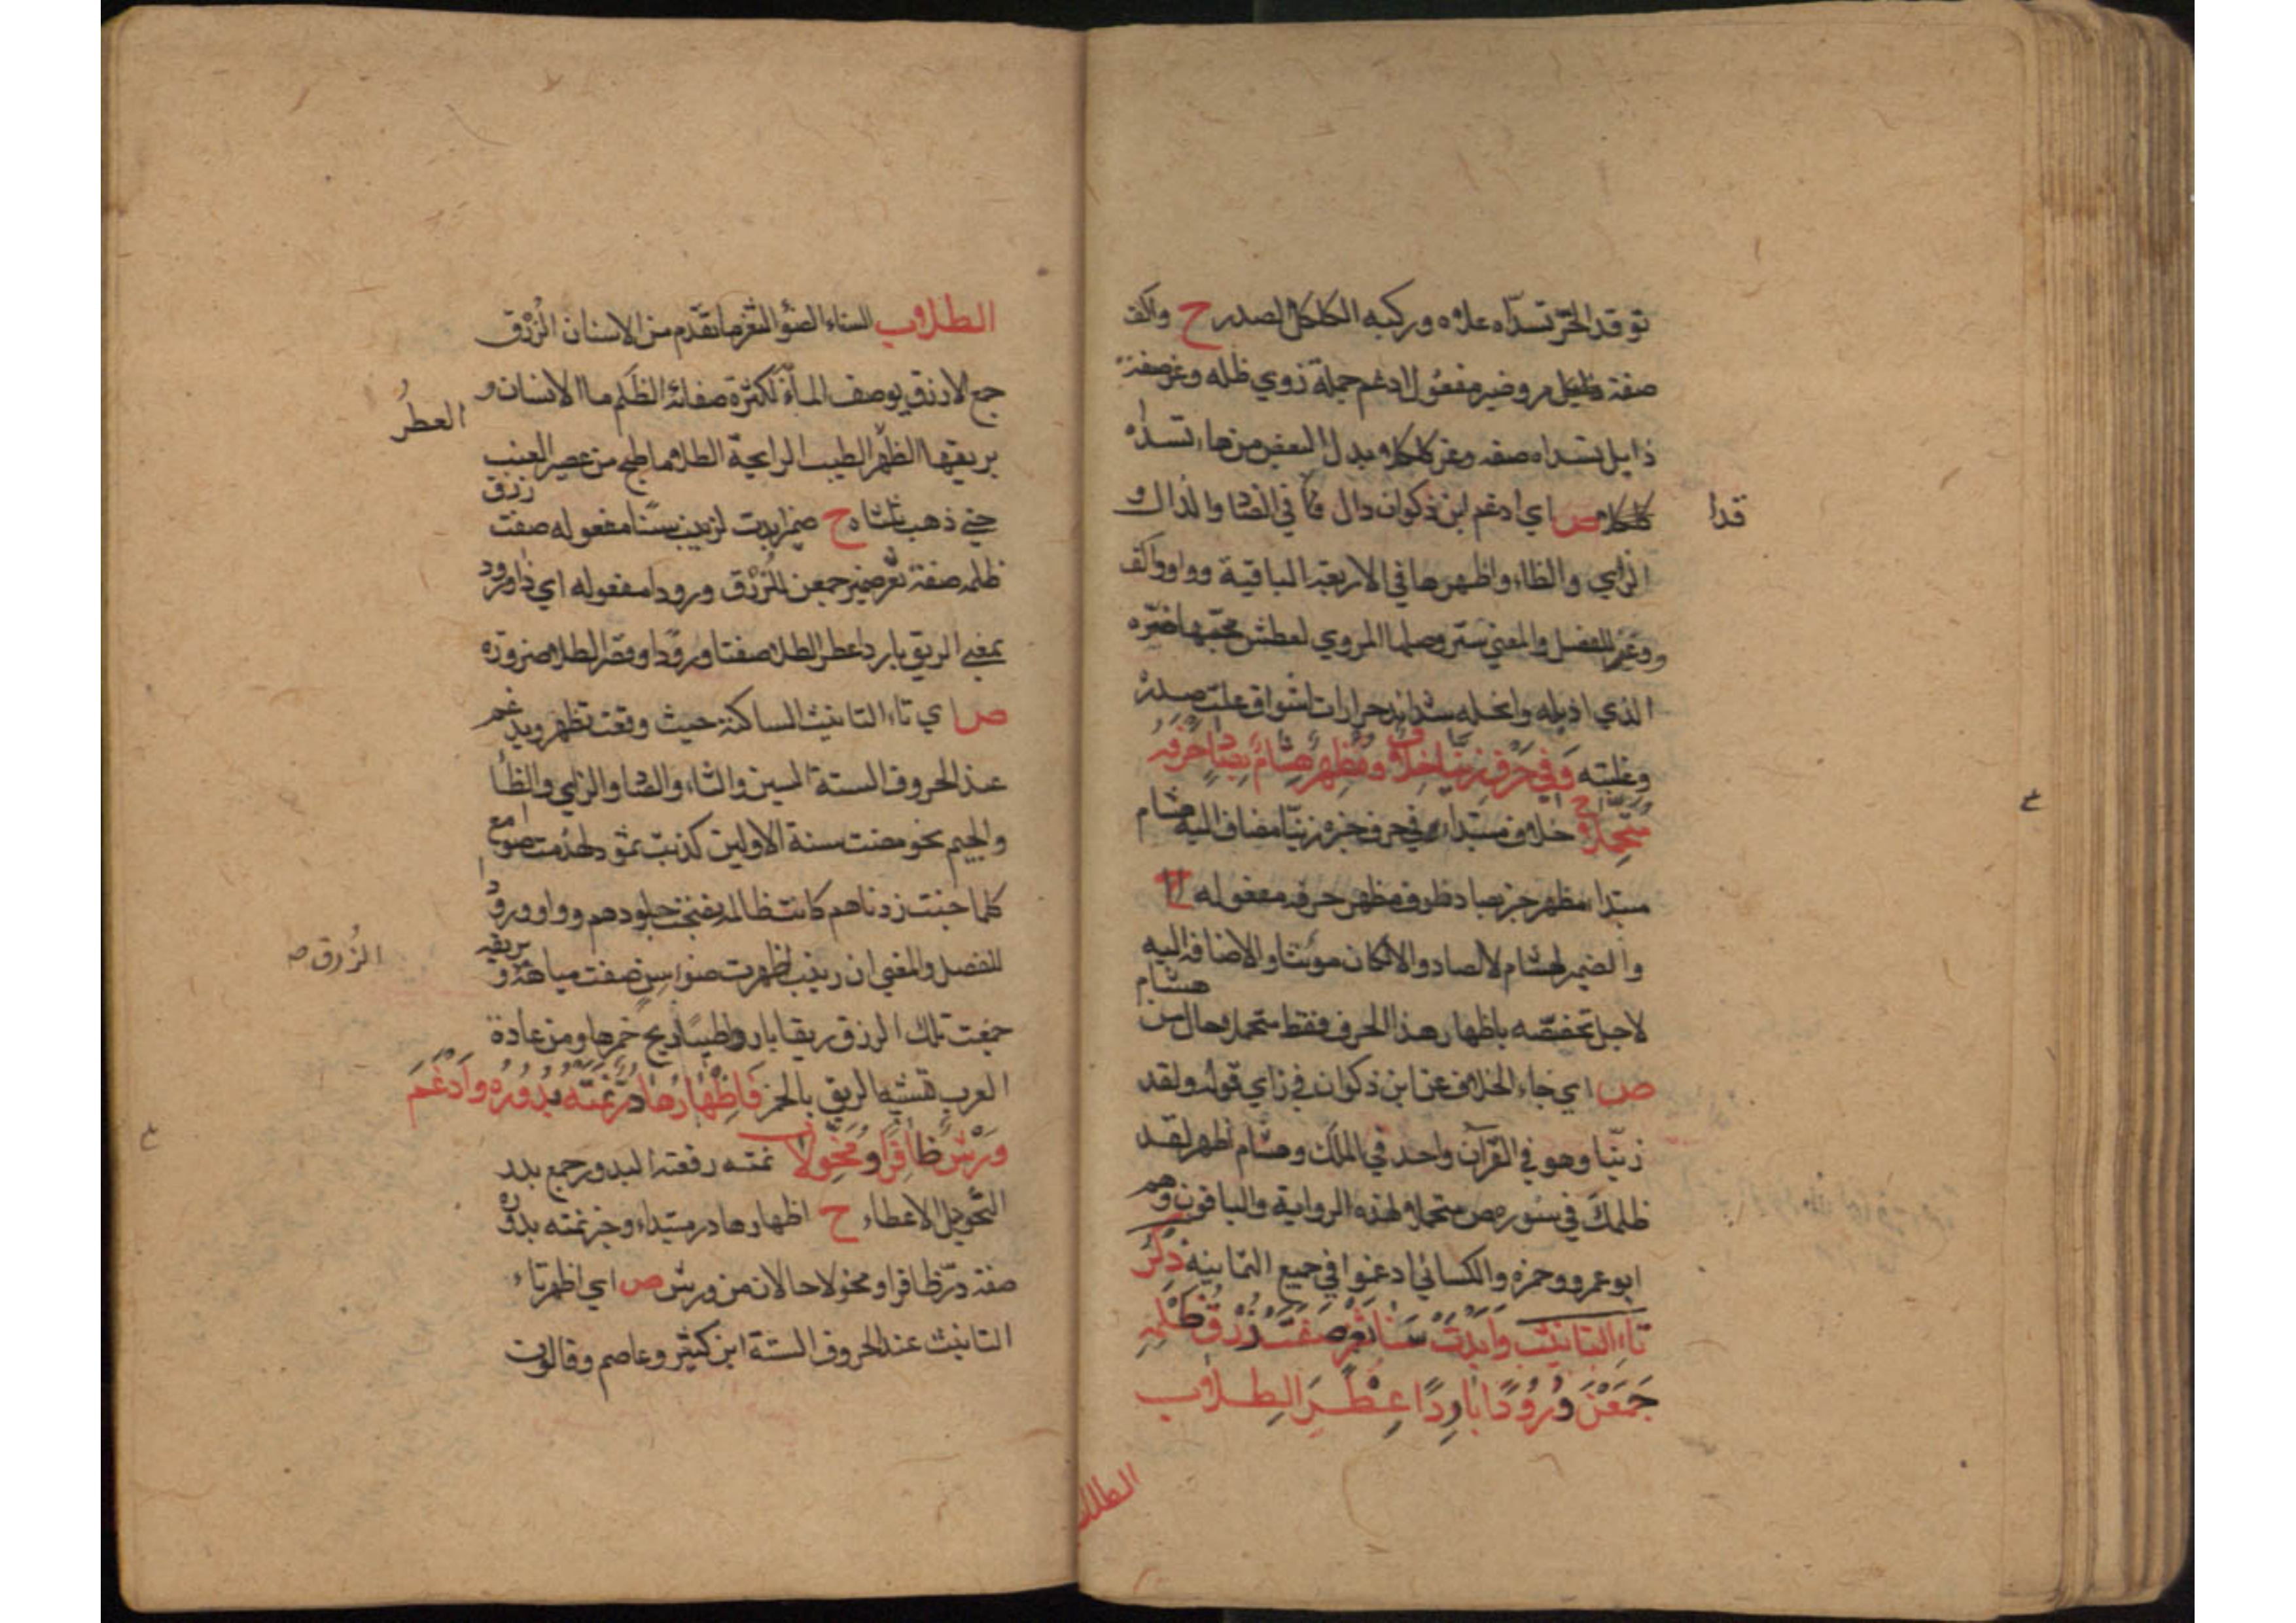 توقد الحرّ تسدّاه علاه وركبه الكلكل الصدر ح واكف
صفة ظليل مروضير مفعول ادغم جملة زوي ظله وغر صفة
ذابل تسداه صفه وغر كلكلا بدل البعض من هاء تسداه
كلكلا ص اي ادغم ابن ذكوان دال في الضا والذال و
قدا
الزاي والظاء واظهرها في الاربعة الباقية وواو واكف
ووغر للفصل والمعني ستر وصلها المروي لعطش محبها ضره
الذي اذبله وانحله شدايد حرارات اشواق علت صدره
وغلبته وَفِي حَرْفِ زَيَّنَّا خِلَافٌ وَمُظْهِرٌ هِشَامٌ بِصَادٍ حَرْفَهُ
مُتَحَمِّلَا ح خلاف مبتدا في حرف خبره زينا مضاف اليه هشام
مبتدا مظهر خبر بصاد ظرف مظهر حرفه مفعوله
والضمير لهشام لا لصاد والا لكان مونثا والاضافة اليه
لاجل تخصصه باظهار هذا الحرف فقط متحملا حال من هشام
ص اي جاء الخلاف عن ابن ذكوان في زاي قوله ولقد
زينا وهو في القرآن واحد في الملك وهشام اظهر لقد
ظلمك في سوره ص متحملا لهذه الرواية والباقون وهم
ابو عمرو وحمزه والكسائي ادغموا في جميع الثمانيه ذِكْرُ
تَاءِ التَّانِيثِ وَأَبْدَتْ سَنَا ثَغْرٍ صَفَتْ زُرْقُ ظَلْمِهِ
جَمَعْنَ وُرُودًا بَارِدًا عَطِرَ الطِّلَا ب
الطلا
الطلا ب السناء الضؤ الثغر ما تقدّم من الاسنان الزُرْق
جمع الازرق يوصف الماء لكثرة صفائه الظَلم ما الاسنان و
العطرُ
بريقها الطيب الرايحة الطلا ما طبخ من عصير العنب
حتي ذهب ثلثاه ح ضمير ابدت لزينب سنا مفعوله صفت زرق
ظلمه صفة ثغر ضمير جمعن للزُرْق ورودا مفعوله اي ذا ورود
بمعني الريق باردا عطر الطلا صفتا ورودا وقصر الطلا ضرورة
ص اي تاء التانيث الساكنة حيث وقعت تظهر ويدغم
عند الحروف الستة السين والثاء والضا والزاي والظا
والجيم نحو مضت سنة الاولين كذبت ثمود لهدمت صوامع
كلما خبت زدناهم كانت ظالمة نضجت جلودهم وواو ورود
للفصل والمعني ان زينب اظهرت ضوء سن صفت مياهه و بريقه
الزُرق ص
جمعت تلك الرزق ريقا باردا طيبا ريح خمرها ومن عادة
العرب تشبيه الريق بالخمر فَاِظْهَارُهَا دُرٌّ نَمَتْهُ بُدُورُهُ وَاَدْغَمَ
وَرْشٌ ظَافِرًا وَمُخَوَّلَا ب نمته رفعته البدور جمع بدر
التخويل الاعطاء ح اظهارها در مبتداء وخبر نمته بدوره
صفة درّ ظافرا ومخولا حالان من ورش ص اي اظهر تاء
التانيث عند الحروف الستة ابن كثير وعاصم وقالون